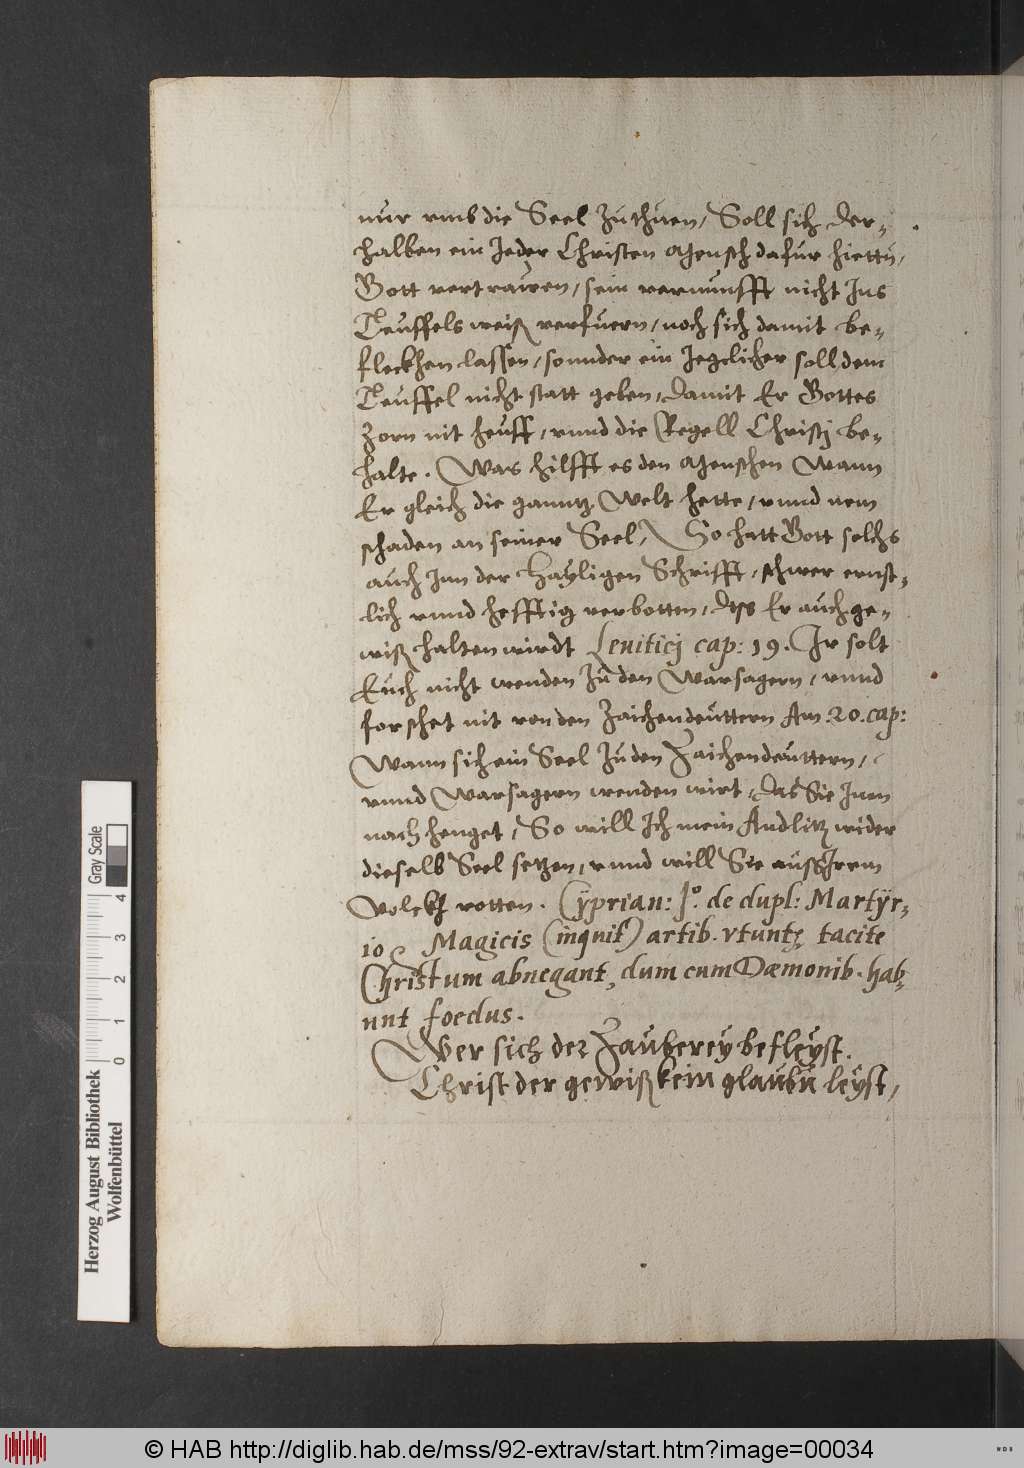 nur vmb die Seel zuthuen, Soll sich der-
halben ein Jeder Christen Mensch dafur hietten,
Gott vertrawen, sein vernunfft nicht Ins
Teuffels weiß verfuern, noch sich damit be-
fleckhen lassen, sonnder ein Jegclicher soll dem
Teuffel nicht statt geben, damit Er Gottes
Zorn nit heuff, vnnd die Regell Christj be-
halte. Was hilfft es den Menschen Wann
Er gleich die ganntz Welt hette, vnnd nem
schaden an seiner Seel, So hatt Gott solchs
auch Jnn der Hayligen Schrifft, schwer ernst-
lich vnnd hefftig verbotten, dts Er auch ge-
wiß halten wirdt Leuiticj cap: 19. Ir solt
Euch nicht wenden Zu den Warsagern, vnnd
forschet nit von den Zaichendeuttern Am .20. cap:
Wann sich ein Seel Zu den Zaichendeuttern,
vnnd Warsagern wenden wirt, das Sie Jnen
nach henget, So will Ich mein Andlitz wider
dieselb Seel setzen, vnnd will Sie auß Jrem
Volckh rotten. Cÿprian: J° de dupl: Martÿr-
io Magicis (inquit) artib. vtuntr tacite
Christum abnegant, dum cum Dæmonib. hab-
unt foedus.
Wer sich der Zauberey befleyst.
Christ der gewiß kein glaubn leyst,
Herzog August Bibliothek
Wolfenbüttel
Gray Scale
0 1 2 3 4
© HAB http://diglib.hab.de/mss/92-extrav/start.htm?image=00034